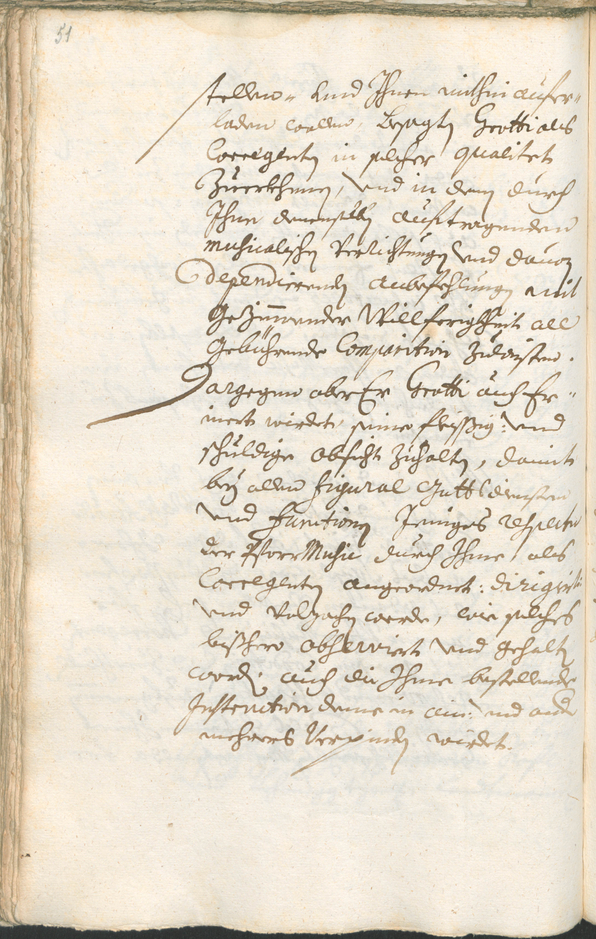 51
stellen- und Ihnen mithin aufer-
laden wollen, besagten Grotti als
Corregenten in solcher qualitet
Zuerkhennen, und in denen durch
Ihne denenselben auftragenden
musicalischen Verrichtungen und davon
dependierenden anbefehlungen mit
Gezimmender Willferigkheit all
Gebührende Composition Zulaisten.
Dargegen aber Er Grotti auch Er-
inert wirdet, seine fleissig: und
schuldige obsicht Zuhalten, damit
bey allen figural Gotts diensten
und functionen Jeniges respectu
der PfarrMusic durch Ihne als
Corregenten angeordnet: dirigiert
und Volzogen werde, wie solches
bisshero observiert und gehalten
worden; auch die Ihme bestellende
Instruction deme in ain: und ander
mehrers Verpinden wirdet.